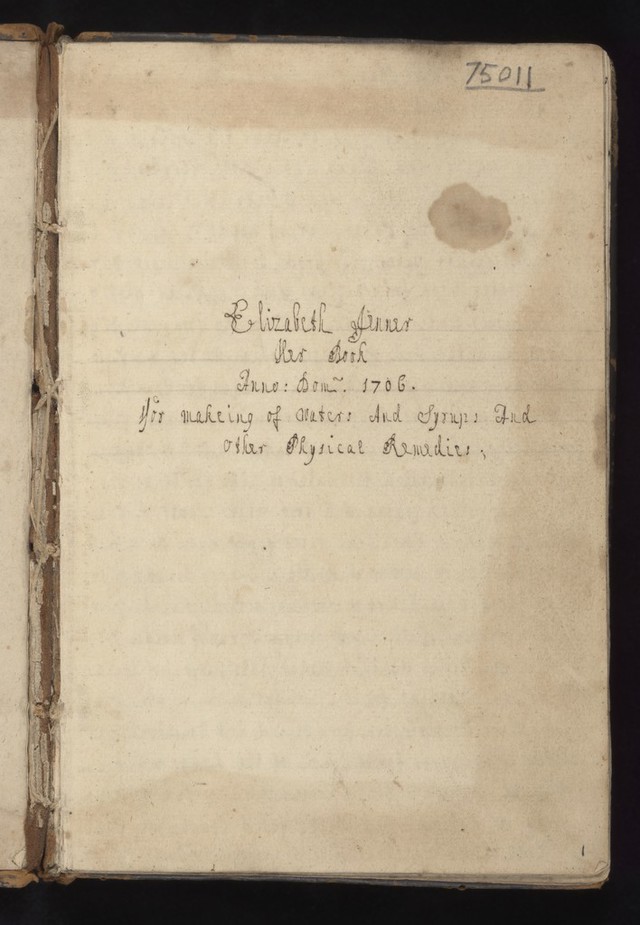 75011
Elizabeth Jenner
Her Book
Anno: Dom~. 1706.
For makeing of Waters And Syrups And
Other Physical Remedies;
1